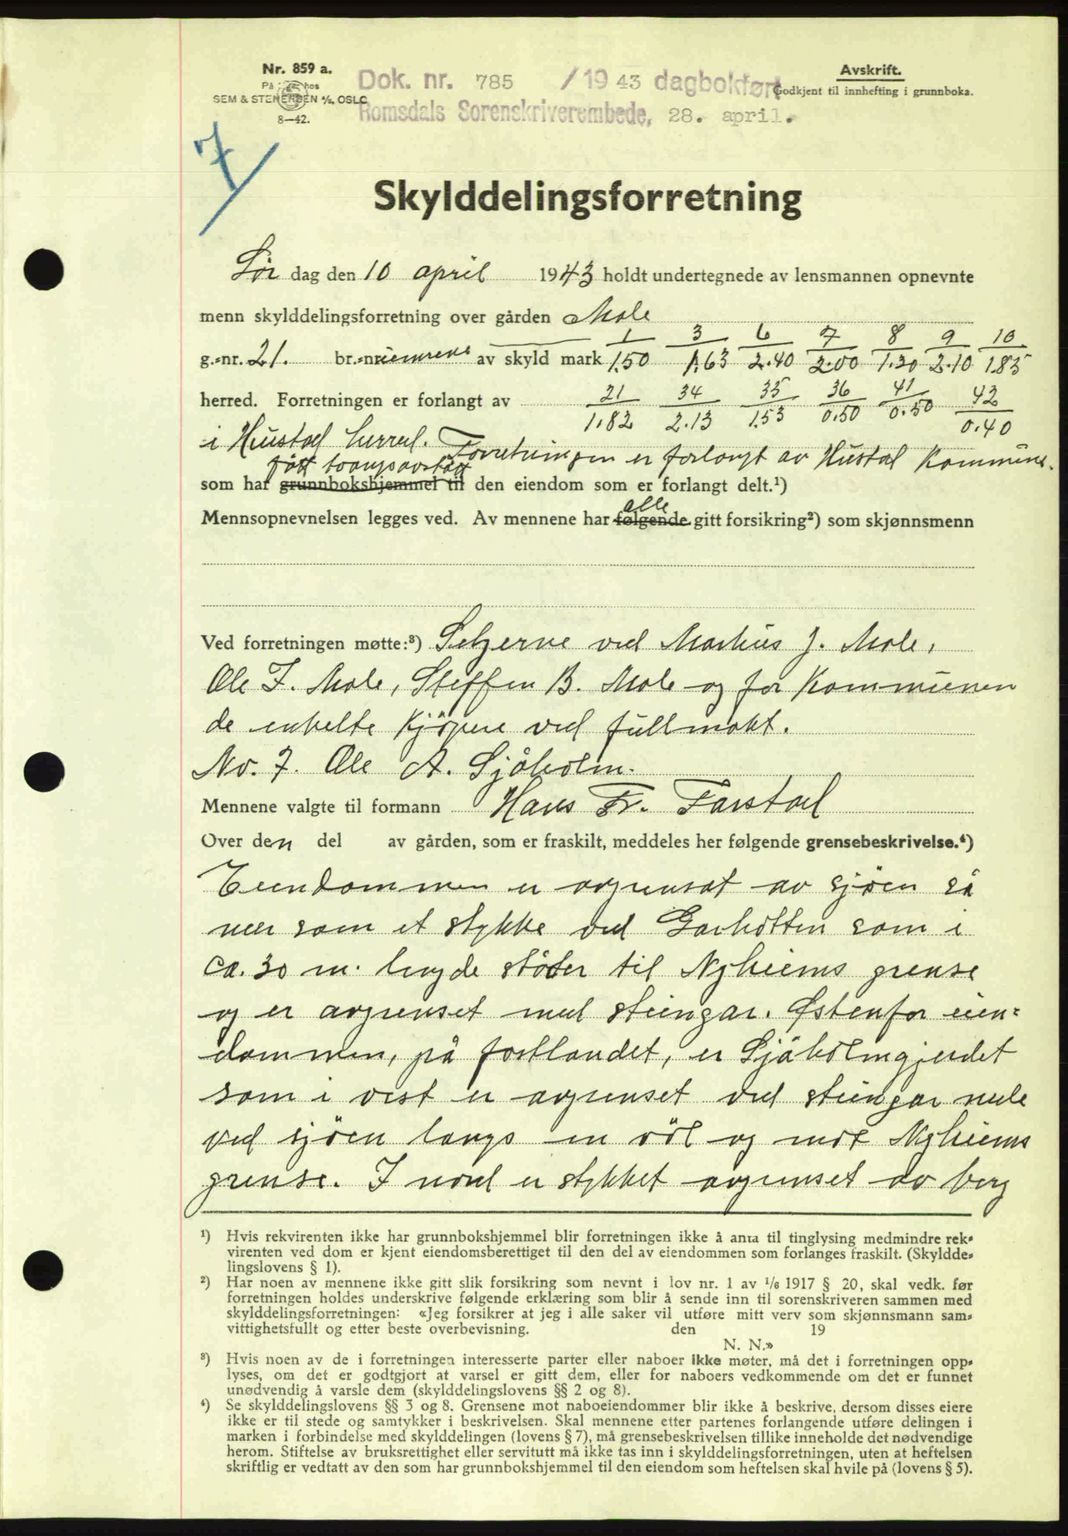 Nr. 859 a.
På hos
SEM & STENERSEN A/S, OSLO
8—42.
Dok. nr. 785 /19 43 dagbokført
Romsdals Sorenskriverembede, 28. april.
Avskrift.
Godkjent til innhefting i grunnboka.
7
Skylddelingsforretning
Lør dag den 10 april 1943 holdt undertegnede av lensmannen opnevnte
menn skylddelingsforretning over gården Male
1 3 6 7 8 9 10
g.-nr. 21. br.-numrene av skyld mark 1.50 1.63 2.40 2.00 1.20 2.10 1.83
21 34 35 36 41 42
herred. Forretningen er forlangt av 1.82 2.13 1.53 0.50 0.50 0.40
i Hustad herred. Forretningen er forlangt av Hustad Kommune.
fått tvangsavståg
som har grunnbokshjemmel til den eiendom som er forlangt delt.¹)
alle
Mennsopnevnelsen legges ved. Av mennene har følgende gitt forsikring²) som skjønnsmenn
Ved forretningen møtte:³) Selgerne ved Markus J. Male,
Ole J. Male, Steffen B. Male og for Kommunen
de enkelte Kjøpere ved fullmakt.
No. 7. Ole A. Sjåholm.
Mennene valgte til formann Hans Fr. Farstad
Over den del av gården, som er fraskilt, meddeles her følgende grensebeskrivelse.⁴)
Eiendommen er avgrenset av sjøen så
nær som et stykke ved Garhotten som i
ca. 30 m. lengde støter til Nyhiems grense
og er avgrenset med steingar. Østenfor eien=
dommen, på fastlandet, er Sjåholmgjerdet
som i vest er avgrenset ved steingar nede
ved sjøen langs en völ og mot Nyhiems
grense. I nord er stykket avgrenset av berg
¹) Hvis rekvirenten ikke har grunnbokshjemmel blir forretningen ikke å anta til tinglysing medmindre rek-
virenten ved dom er kjent eiendomsberettiget til den del av eiendommen som forlanges fraskilt. (Skyldde-
lingslovens § 1).
²) Har noen av mennene ikke gitt slik forsikring som nevnt i lov nr. 1 av 1/6 1917 § 20, skal vedk. før
forretningen holdes underskrive følgende erklæring som blir å sende inn til sorenskriveren sammen med
skylddelingsforretningen: «Jeg forsikrer at jeg i alle saker vil utføre mitt verv som skjønnsmann sam-
vittighetsfullt og etter beste overbevisning. den 19
N. N.»
³) Hvis noen av de i forretningen interesserte parter eller naboer ikke møter, må det i forretningen opp-
lyses, om det er godtgjort at varsel er gitt dem, eller for naboers vedkommende om det er funnet
unødvendig å varsle dem (skylddelingslovens §§ 2 og 8).
⁴) Se skylddelingslovens §§ 3 og 8. Grensene mot naboeiendommer blir ikke å beskrive, dersom disses eiere
ikke er til stede og samtykker i beskrivelsen. Skal mennene etter partenes forlangende utføre delingen i
marken i forbindelse med skylddelingen (lovens § 7), må grensebeskrivelsen tillike inneholde det nødvendige
herom. Stiftelse av bruksrettighet eller servitutt må ikke tas inn i skylddelingsforretningen, uten at heftelsen
skriftlig er vedtatt av den som har grunnbokshjemmel til den eiendom som heftelsen skal hvile på (lovens § 5).